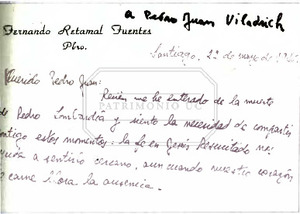 a Pedro Juan Viladrich
Fernando Retamal Fuentes
Pbro.
Santiago, 22 de mayo de
Querido Pedro Juan:
Recién me he enterado de la muerte
de Pedro Lombardía y siento la necesidad de compartir
contigo estos momentos. La fe en Jesús Resucitado nos
ayuda a sentirlo cercano, aun cuando nuestro corazón
de carne llora la ausencia.
PATRIMONIO UC